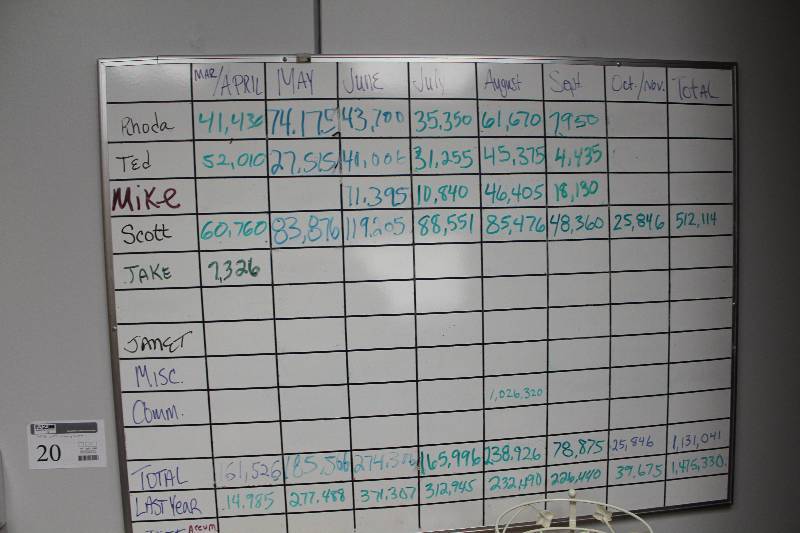 MAR/APRIL MAY JUNE July August Sept. Oct./Nov. TOTAL
Rhoda 41,436 74,175 43,700 35,350 61,670 7,950
TED 52,010 27,515 31,255 45,375 4,435
MiKe 71,395 10,840 46,405 18,130
Scott 60,760 83,876 119,205 88,551 85,476 48,360 25,846 512,114
JAKE 7,326
JANET
MISC. 1,026,320
Comm.
TOTAL 161,526 165,996 238,926 78,875 25,846 1,131,041
LAST YEAR 14,985 277,488 371,307 312,945 232,490 226,440 39,675 1,475,330
Accum
20